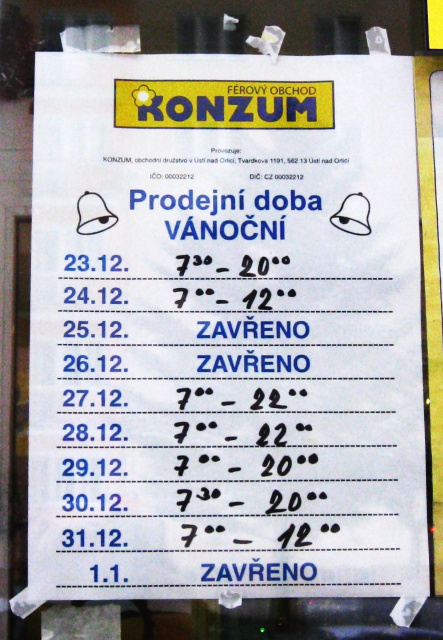 FÉROVÝ OBCHOD
KONZUM
Provozuje:
KONZUM, obchodní družstvo v Ústí nad Orlicí, Tvardkova 1191, 562 13 Ústí nad Orlicí
IČO: 00032212 DIČ: CZ 00032212
Prodejní doba
VÁNOČNÍ
23.12. 7³⁰ - 20⁰⁰
24.12. 7⁰⁰ - 12⁰⁰
25.12. ZAVŘENO
26.12. ZAVŘENO
27.12. 7⁰⁰ - 22⁰⁰
28.12. 7⁰⁰ - 22⁰⁰
29.12. 7⁰⁰ - 20⁰⁰
30.12. 7³⁰ - 20⁰⁰
31.12. 7⁰⁰ - 12⁰⁰
1.1. ZAVŘENO